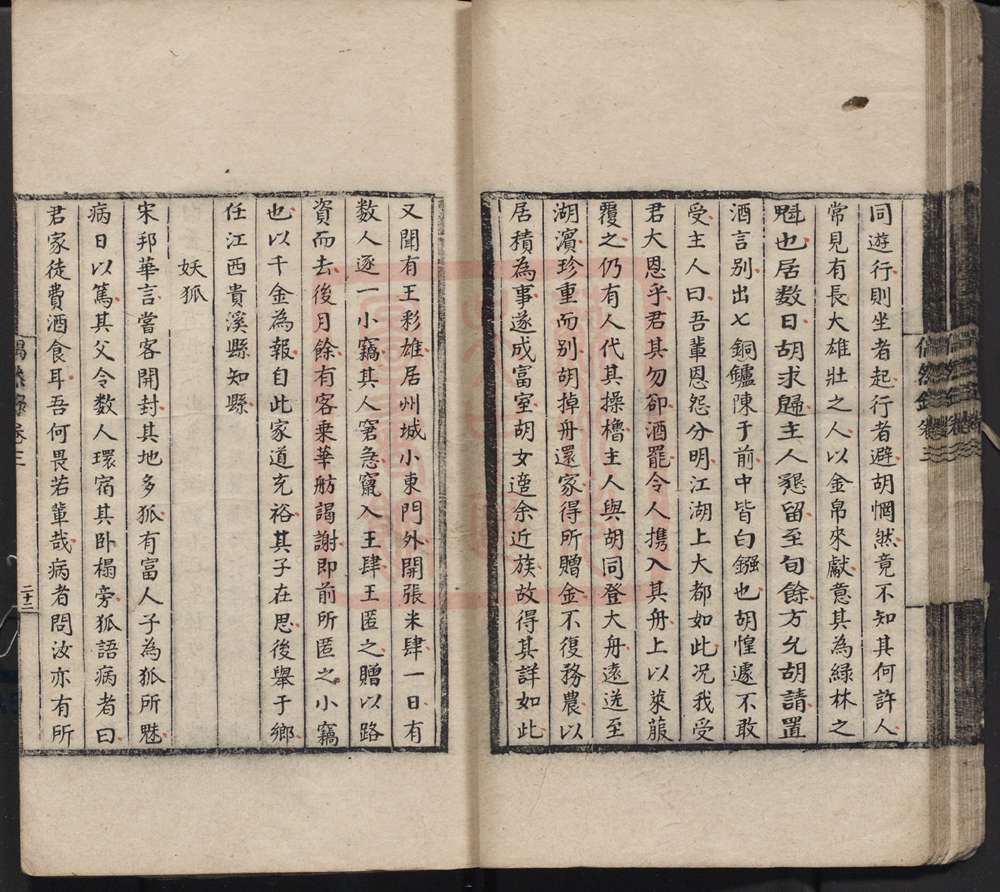 同遊行則坐者起行者避胡惘然竟不知其何許人
常見有長大雄壯之人以金帛來獻意其為緑林之
魁也居数日胡求歸主人懇留至旬餘方允胡請置
酒言别出七銅鑪陳于前中皆白鏹也胡惶遽不敢
受主人曰吾輩恩怨分明江湖上大都如此况我受
君大恩乎君其勿卻酒罷令人携入其舟上以萊菔
覆之仍有人代其操櫓主人與胡同登大舟遠送至
湖濵珍重而别胡掉舟還家得所贈金不復務農以
居積為事遂成富室胡女適余近族故得其詳如此
又聞有王彩雄居州城小東門外開張米肆一日有
数人逐一小竊其人窘急竄入王肆王匿之贈以路
資而去後月餘有客乗華舫謁謝即前所匿之小竊
也以千金為報自此家道充裕其子在思後舉于鄉
任江西貴溪縣知縣
妖狐
宋邦華言嘗客開封其地多狐有富人子為狐所魅
病日以篤其父令数人環宿其卧榻旁狐語病者曰
君家徒費酒食耳吾何畏若輩哉病者問汝亦有所
偶然錄卷三
二十二